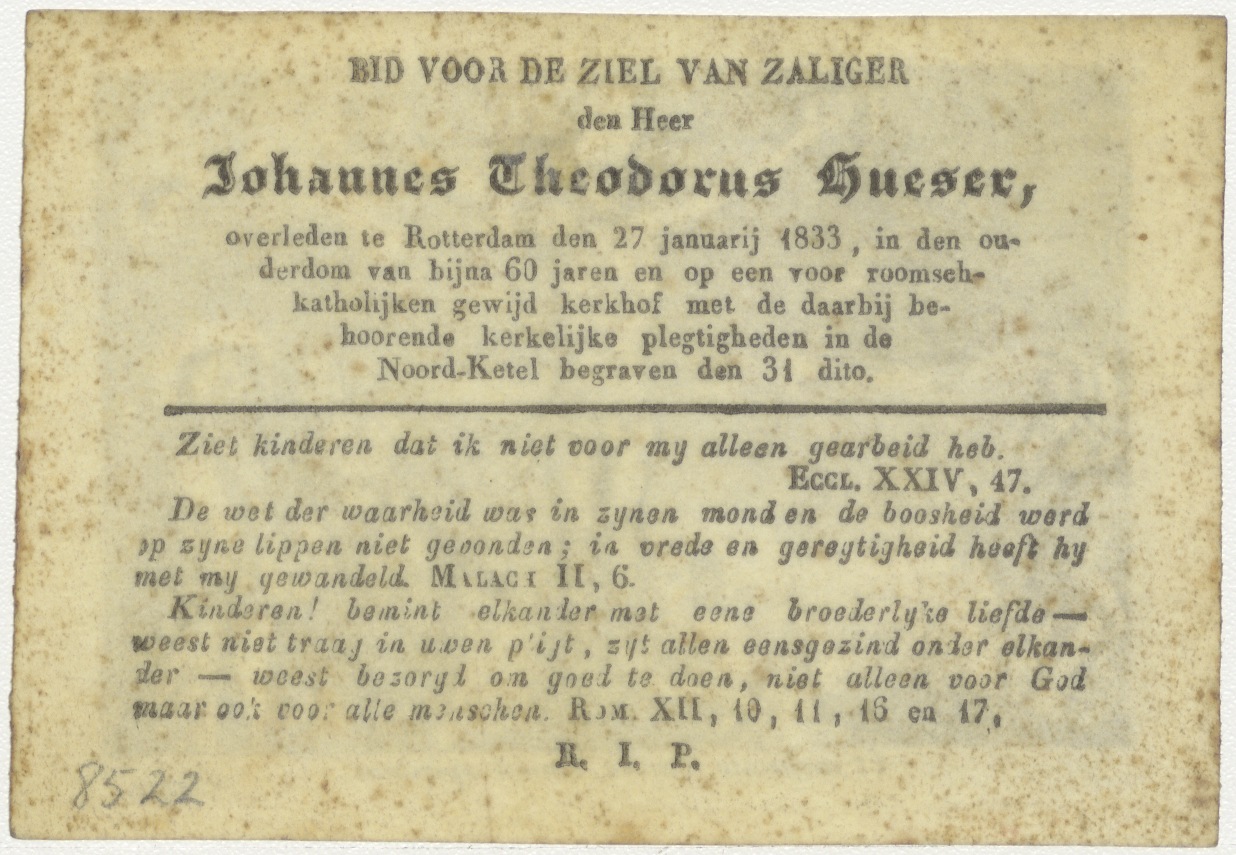 BID VOOR DE ZIEL VAN ZALIGER
den Heer
Johannes Theodorus Hueser,
overleden te Rotterdam den 27 januarij 1833, in den ou-
derdom van bijna 60 jaren en op een voor roomsch-
katholijken gewijd kerkhof met de daarbij be-
hoorende kerkelijke plegtigheden in de
Noord-Ketel begraven den 31 dito.
Ziet kinderen dat ik niet voor my alleen gearbeid heb.
ECCL. XXIV, 47.
De wet der waarheid was in zynen mond en de boosheid werd
op zyne lippen niet gevonden; in vrede en geregtigheid heeft hy
met my gewandeld. MALACH II, 6.
Kinderen! bemint elkander met eene broederlyke liefde —
weest niet traag in uwen pligt, zijt allen eensgezind onder elkan-
der — weest bezorgd om goed te doen, niet alleen voor God
maar ook voor alle menschen. ROM. XII, 10, 11, 16 en 17.
R. I. P.
8522